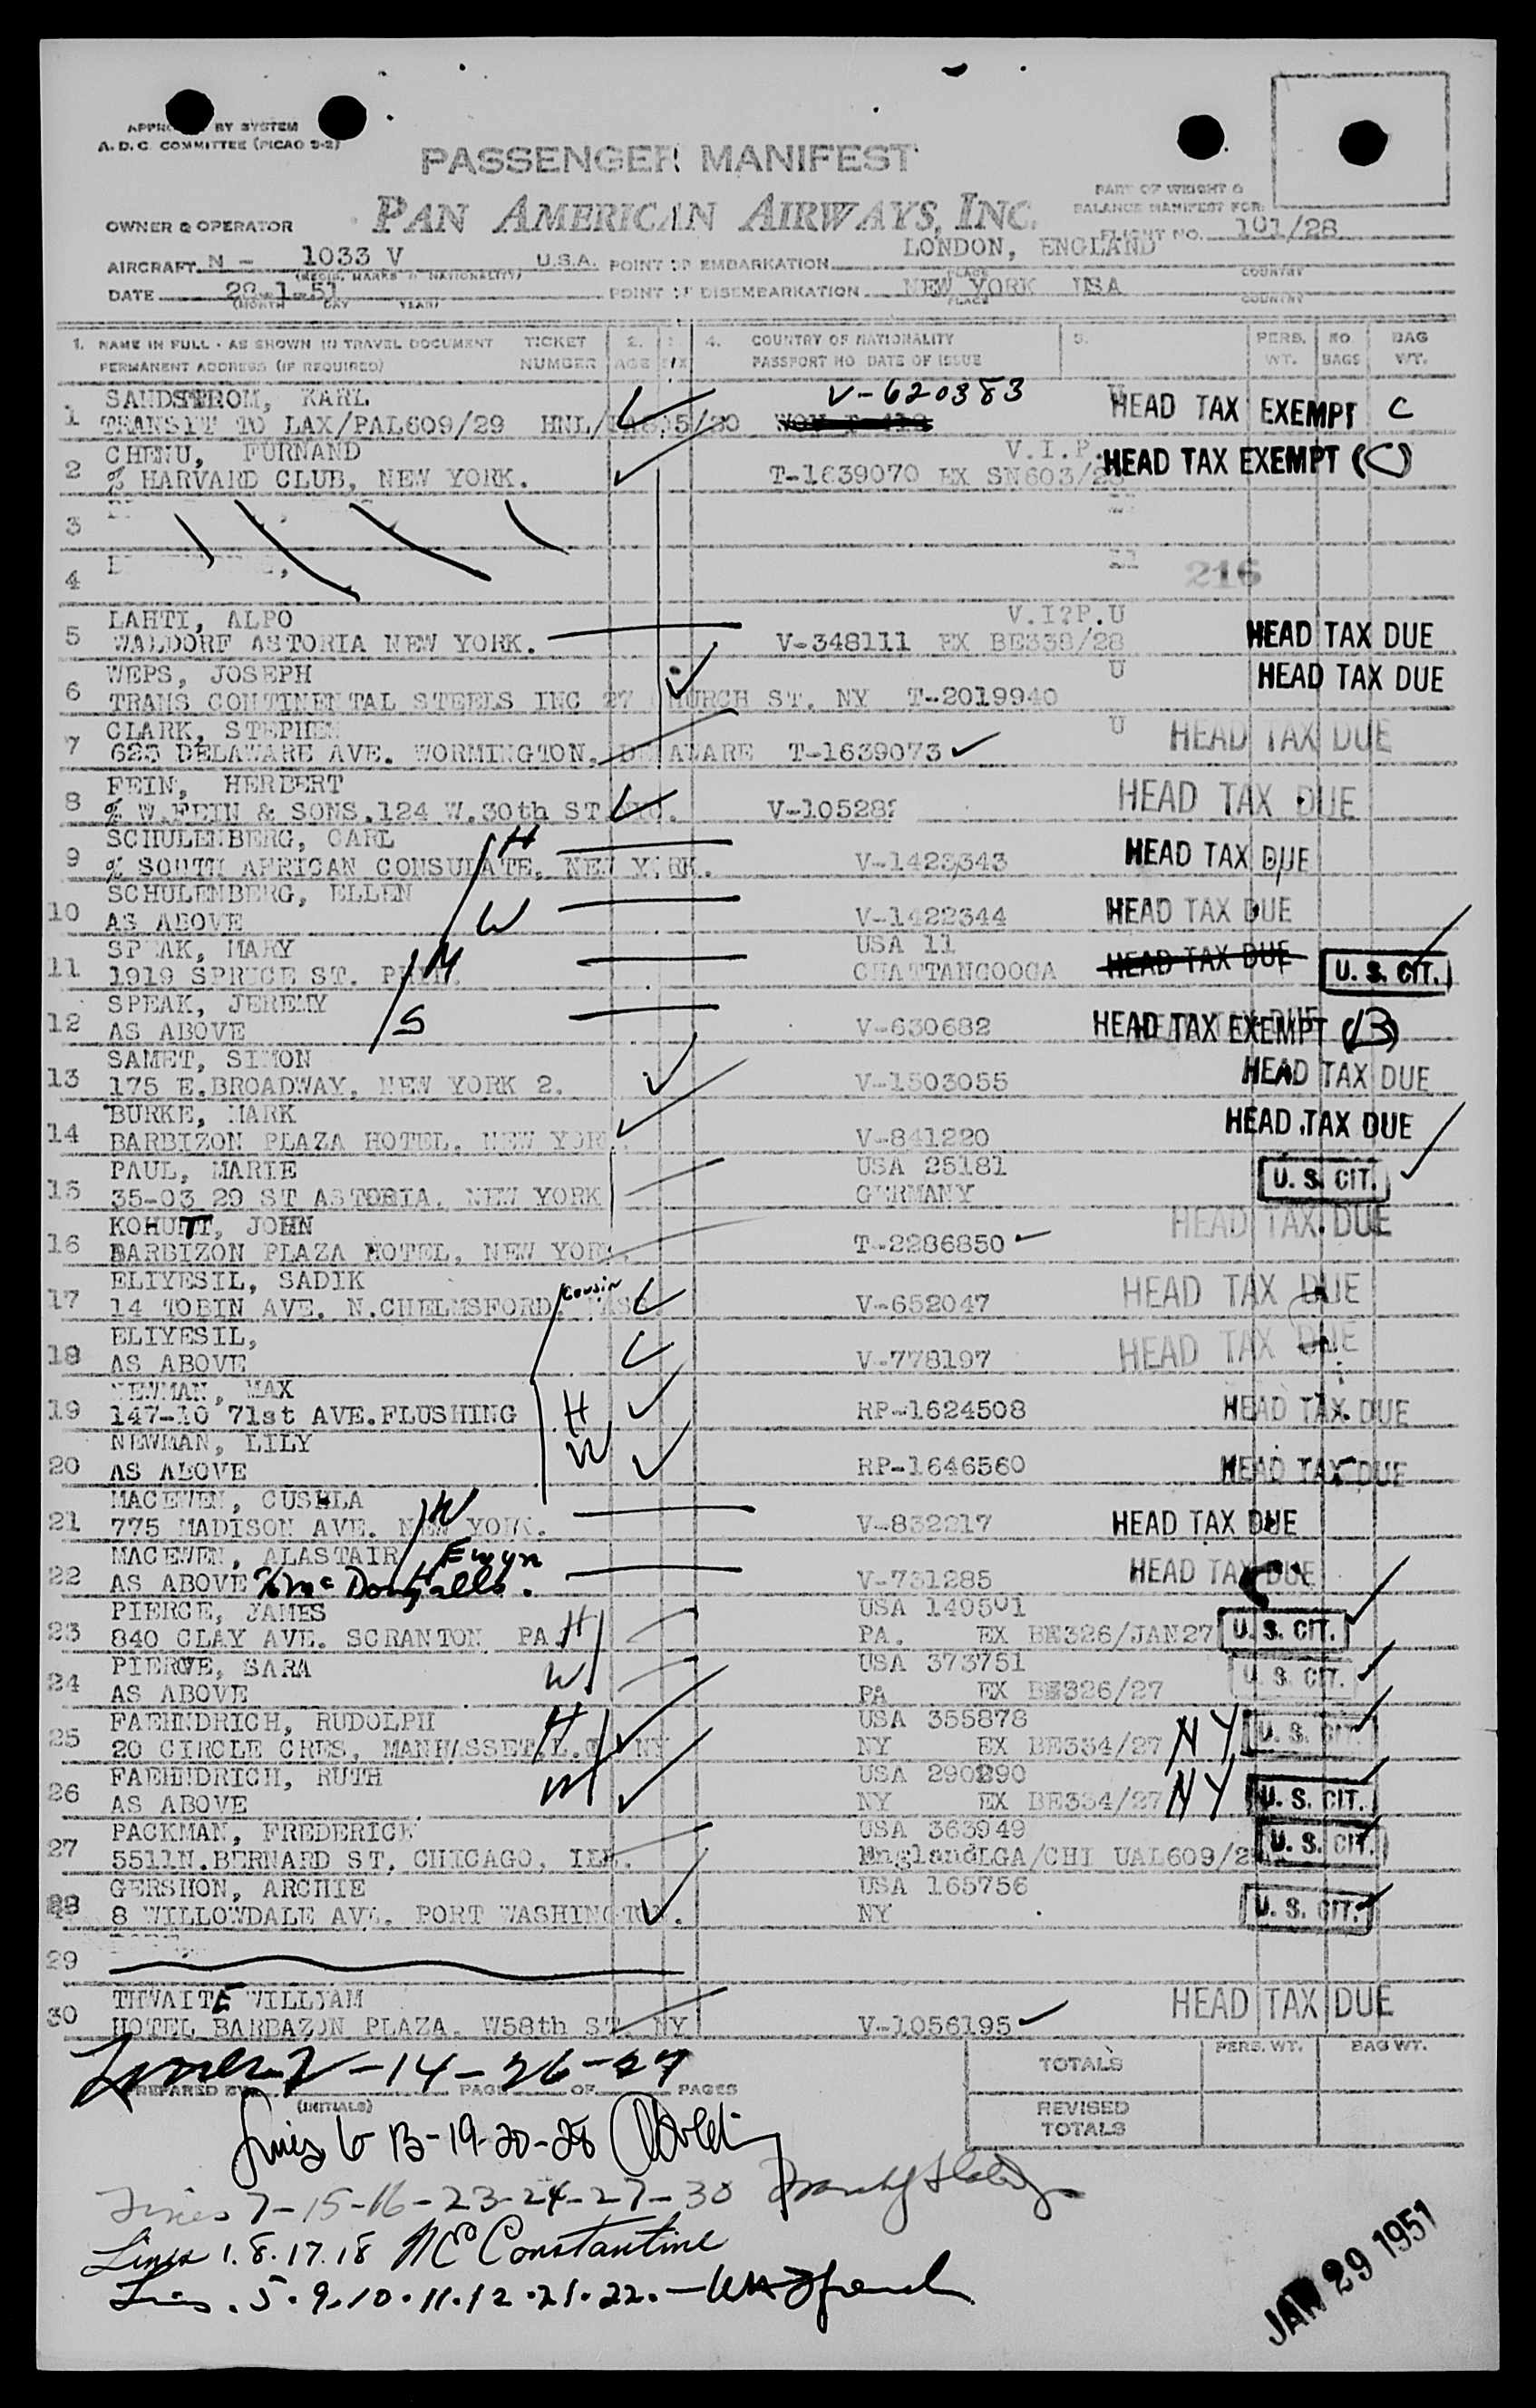 APPRO BY SYSTEM
A. D. C. COMMITTEE (PICAO 2-2)
PASSENGER MANIFEST
PAN AMERICAN AIRWAYS, INC.
PART OF WEIGHT &
BALANCE MANIFEST FOR:
FLIGHT NO. 101/28
OWNER & OPERATOR
AIRCRAFT N - 1033 V U.S.A.
(REGIS. MARKS & NATIONALITY)
POINT OF EMBARKATION LONDON, ENGLAND
PLACE COUNTRY
DATE 28-1-51
(MONTH DAY YEAR)
POINT OF DISEMBARKATION NEW YORK USA
PLACE COUNTRY
1. NAME IN FULL - AS SHOWN IN TRAVEL DOCUMENT TICKET 2. 4. COUNTRY OF NATIONALITY 5. PERS. NO. BAG
PERMANENT ADDRESS (IF REQUIRED) NUMBER AGE SEX PASSPORT NO DATE OF ISSUE WT. BAGS WT.
SANDSTROM, KARL V-620383
1 TRANSIT TO LAX/PAL609/29 HEAD TAX EXEMPT C
CHENU, FURNAND V.I.P.
2 % HARVARD CLUB, NEW YORK. T-1639070 EX SN603/28 HEAD TAX EXEMPT (C)
3
4 216
LAHTI, ALPO V.I?P.U
5 WALDORF ASTORIA NEW YORK. V-348111 EX BE338/28 HEAD TAX DUE
WEPS, JOSEPH U
6 TRANS CONTINENTAL STEELS INC 27 CHURCH ST, NY T-2019940 HEAD TAX DUE
CLARK, STEPHEN U
7 623 DELAWARE AVE. WORMINGTON, DELAWARE T-1639073 HEAD TAX DUE
FEIN, HERBERT
8 % W.FEIN & SONS.124 W.30th ST V-10528 HEAD TAX DUE
SCHULENBERG, CARL H
9 % SOUTH AFRICAN CONSULATE, NEW YORK. V-1423343 HEAD TAX DUE
SCHULENBERG, ELLEN
10 AS ABOVE W V-1422344 HEAD TAX DUE
SPEAK, MARY M USA 11
11 1919 SPRUCE ST. CHATTANGOOGA HEAD TAX DUE U. S. CIT.
SPEAK, JEREMY
12 AS ABOVE S V-630682 HEAD TAX EXEMPT (B)
SAMET, SIMON
13 175 E.BROADWAY, NEW YORK 2. V-1503055 HEAD TAX DUE
BURKE, MARK
14 BARBIZON PLAZA HOTEL, NEW YORK V-841220 HEAD TAX DUE
PAUL, MARIE USA 25181
15 35-03 29 ST ASTORIA, NEW YORK GERMANY U. S. CIT.
KOHUTT, JOHN
16 BARBIZON PLAZA HOTEL, NEW YORK. T-2286850 HEAD TAX DUE
ELIYESIL, SADIK Cousin
17 14 TOBIN AVE. N.CHELMSFORD, MASS. V-652047 HEAD TAX DUE
ELIYESIL,
18 AS ABOVE V-778197 HEAD TAX DUE
NEWMAN, MAX
19 147-10 71st AVE.FLUSHING H RP-1624508 HEAD TAX DUE
NEWMAN, LILY W
20 AS ABOVE RP-1646560 HEAD TAX DUE
MACEWEN, CUSHLA W
21 775 MADISON AVE. NEW YORK. V-832217 HEAD TAX DUE
MACEWEN, ALASTAIR Ewyn
22 AS ABOVE % McDougalls. H V-731285 HEAD TAX DUE
PIERCE, JAMES USA 149501
23 840 CLAY AVE. SCRANTON PA. H PA. EX BE326/JAN27 U. S. CIT.
PIERCE, SARA USA 373751
24 AS ABOVE W PA EX BE326/27 U. S. CIT.
FAEHNDRICH, RUDOLPH H USA 355878
25 20 CIRCLE CRES, MANHASSET.L.I. NY NY EX BE334/27 NY U. S. CIT.
FAEHNDRICH, RUTH W USA 290290
26 AS ABOVE NY EX BE334/27 NY U. S. CIT.
PACKMAN, FREDERICK USA 363949
27 5511N.BERNARD ST, CHICAGO, ILL. England LGA/CHI UAL609/2 U. S. CIT.
GERSHON, ARCHIE USA 165756
28 8 WILLOWDALE AVE. PORT WASHINGTON. NY U. S. CIT.
29
THWAITE WILLIAM
30 HOTEL BARBAZON PLAZA. W58th ST. NY V-1056195 HEAD TAX DUE
Lines 2-14-26-27
PREPARED BY PAGE OF PAGES
(INITIALS)
TOTALS PERS. WT. BAG WT.
REVISED
TOTALS
Lines 6 13-19-20-28
Lines 7-15-16-23-24-27-30
Lines 1.8.17.18 Constantine
Lines. 5.9.10.11.12.21.22.
JAN 29 1951